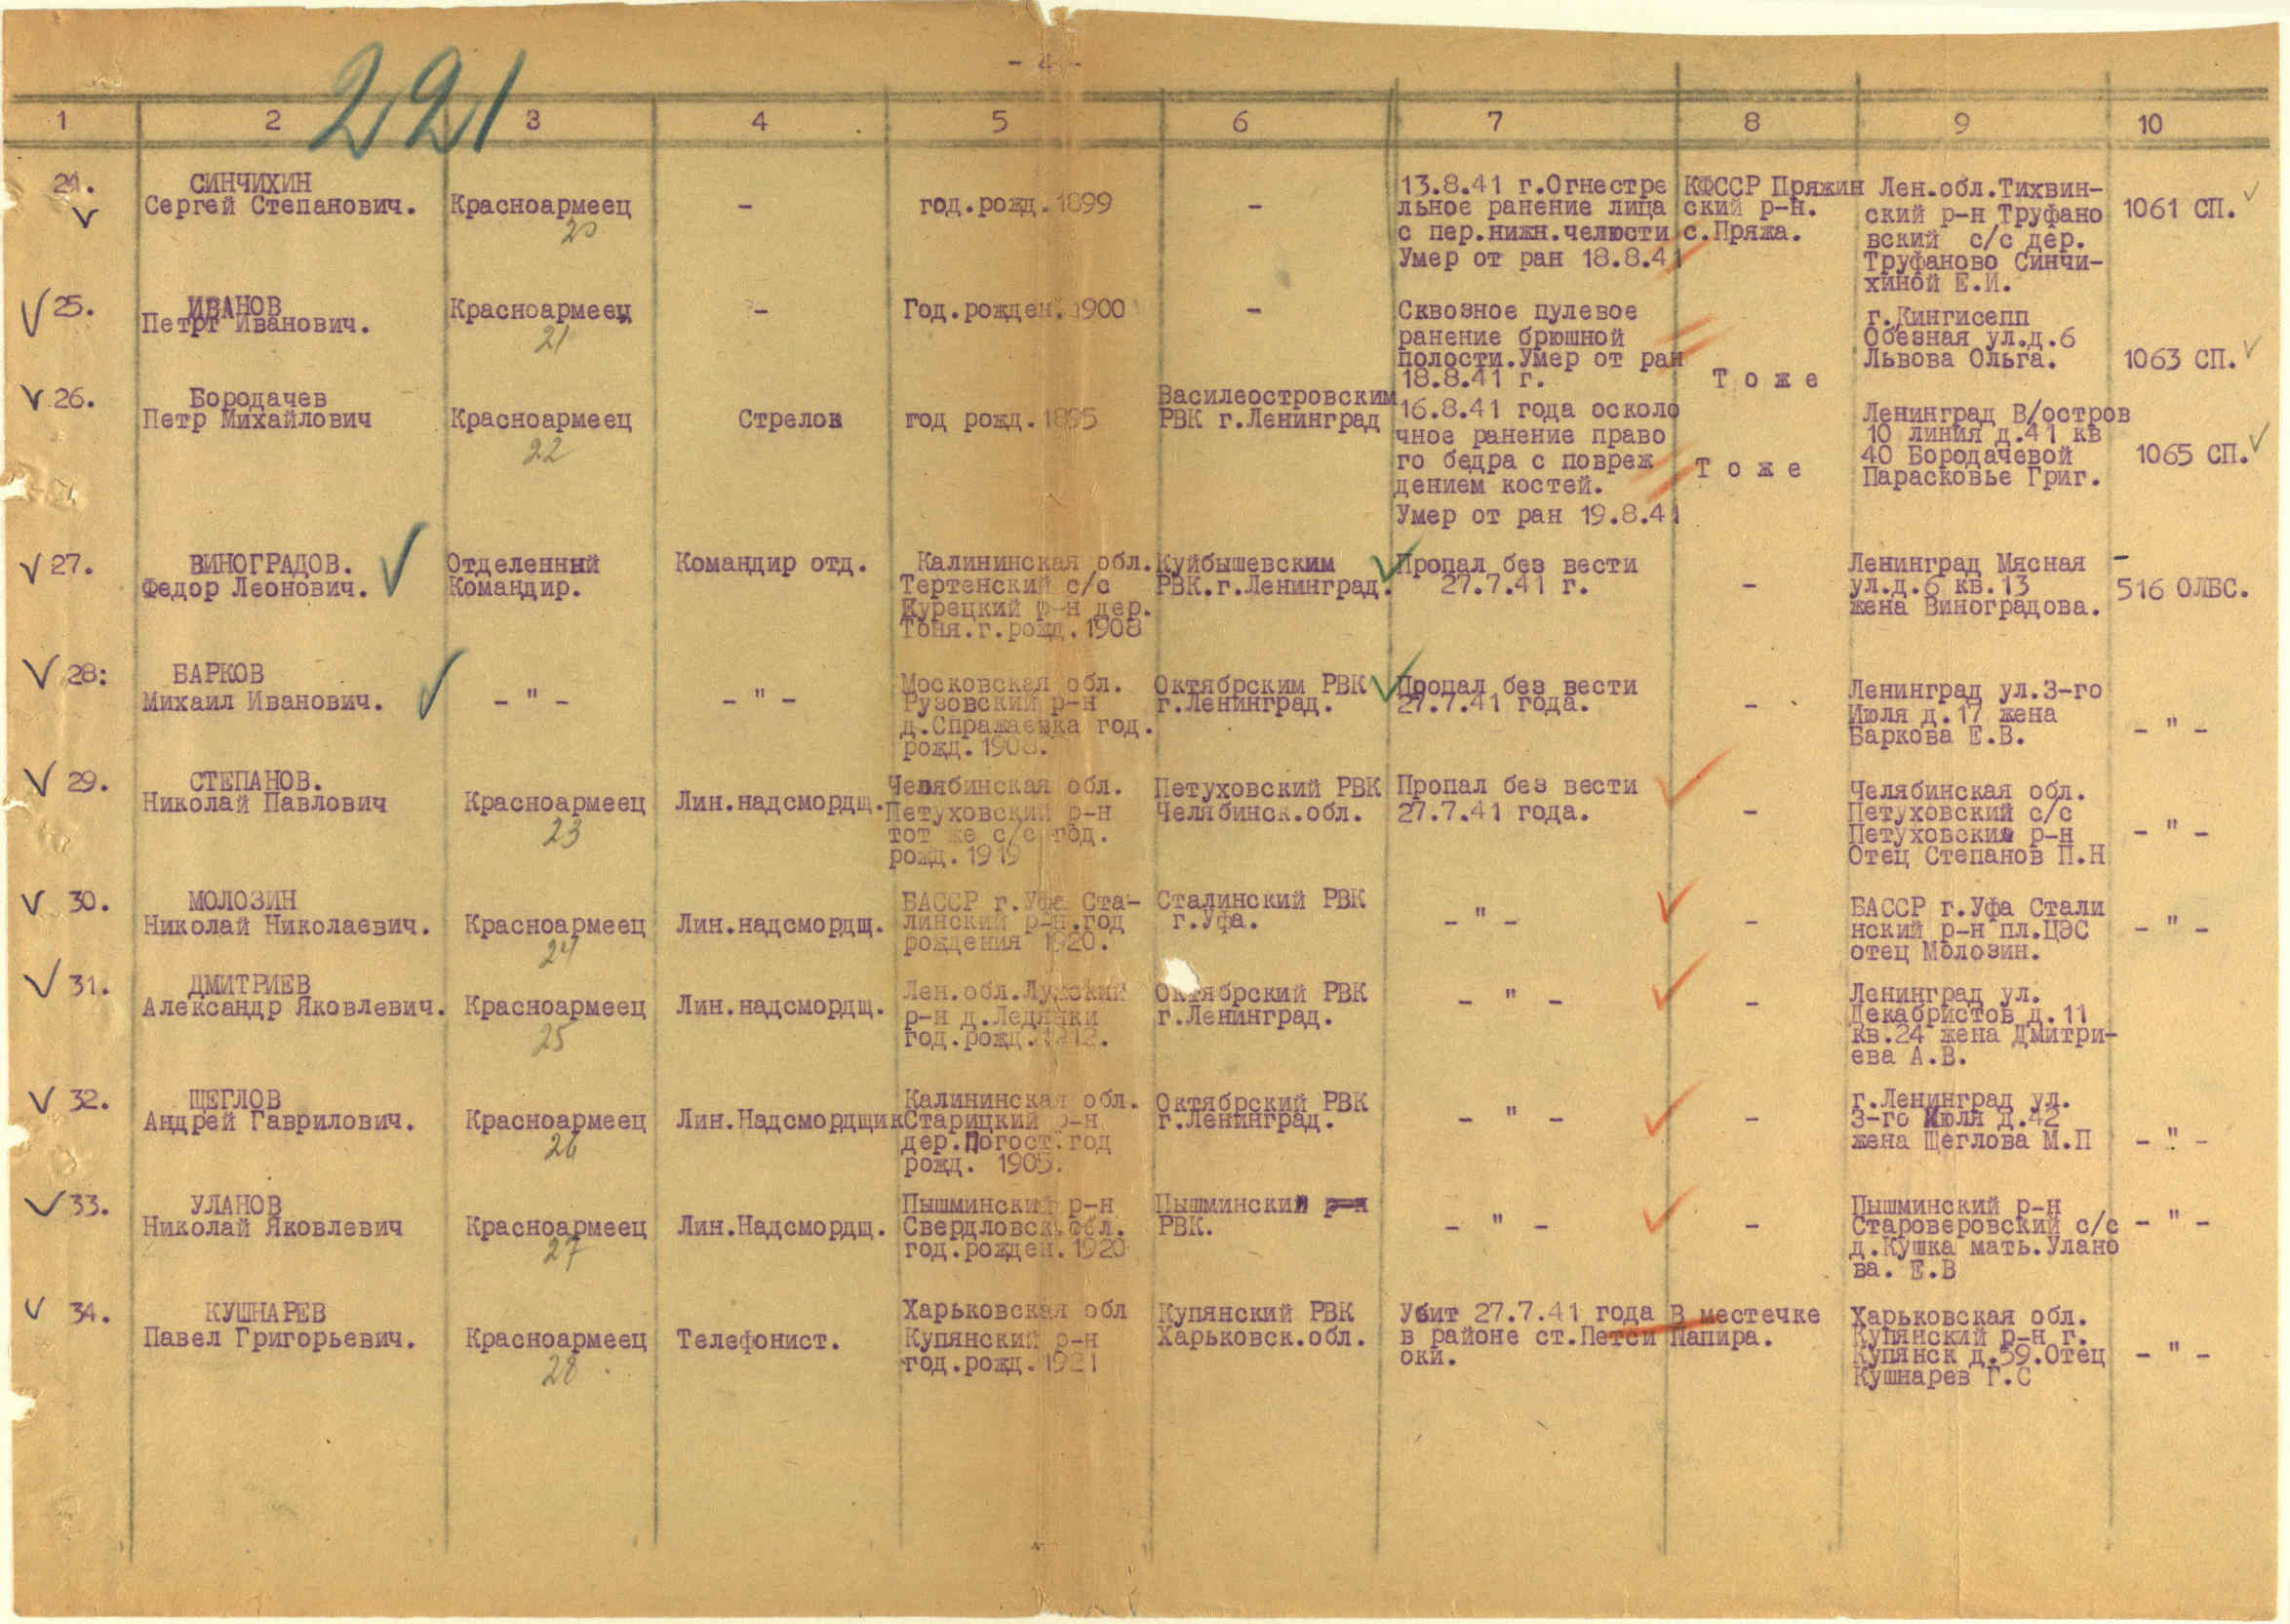 - 4 -
221
1 2 3 4 5 6 7 8 9 10
24.
СИНЧИХИН
Сергей Степанович.
Красноармеец
20
-
год.рожд.1899
-
13.8.41 г.Огнестре
льное ранение лица
с пер.нижн.челюсти
Умер от ран 18.8.41
КФССР Пряжин
ский р-н.
с.Пряжа.
Лен.обл.Тихвин-
ский р-н Труфано
вский с/с дер.
Труфаново Синчи-
хиной Е.И.
1061 СП.
25.
ИВАНОВ
Петрт Иванович.
Красноармеец
21
-
Год.рожден.1900
-
Сквозное пулевое
ранение брюшной
полости.Умер от ран
18.8.41 г.
Т о ж е
г.Кингисепп
Обезная ул.д.6
Львова Ольга.
1063 СП.
26.
Бородачев
Петр Михайлович
Красноармеец
22
Стрелок
год рожд.1895
Василеостровским
РВК г.Ленинград
16.8.41 года осколо
чное ранение право
го бедра с повреж
дением костей.
Умер от ран 19.8.41
Т о ж е
Ленинград В/остров
10 линия д.41 кв
40 Бородачевой
Парасковье Григ.
1065 СП.
27.
ВИНОГРАДОВ.
Федор Леонович.
Отделенный
Командир.
Командир отд.
Калининская обл.
Тертенский с/с
Курецкий р-н дер.
Тоня.г.рожд.1908
Куйбышевским
РВК.г.Ленинград.
Пропал без вести
27.7.41 г.
-
Ленинград Мясная
ул.д.6 кв.13
жена Виноградова.
-
516 ОЛБС.
28:
БАРКОВ
Михаил Иванович.
- " -
- " -
Московская обл.
Рузовский р-н
д.Спражаевка год.
рожд.1908.
Октябрским РВК
г.Ленинград.
Пропал без вести
27.7.41 года.
-
Ленинград ул.3-го
Июля д.17 жена
Баркова Е.В.
- " -
29.
СТЕПАНОВ.
Николай Павлович
Красноармеец
23
Лин.надсмордщ.
Челябинская обл.
Петуховский р-н
тот же с/с год.
рожд.1919
Петуховский РВК
Челябинск.обл.
Пропал без вести
27.7.41 года.
-
Челябинская обл.
Петуховский с/с
Петуховский р-н
Отец Степанов П.Н
- " -
30.
МОЛОЗИН
Николай Николаевич.
Красноармеец
24
Лин.надсмордщ.
БАССР г.Уфа Ста-
линский р-н.год
рождения 1920.
Сталинский РВК
г.Уфа.
- " -
-
БАССР г.Уфа Стали
нский р-н пл.ЦЭС
отец Молозин.
- " -
31.
ДМИТРИЕВ
Александр Яковлевич.
Красноармеец
25
Лин.надсмордщ.
Лен.обл.Лужский
р-н д.Ледянки
год.рожд.1912.
Октябрский РВК
г.Ленинград.
- " -
-
Ленинград ул.
Декабристов д.11
кв.24 жена Дмитри-
ева А.В.
32.
ЩЕГЛОВ
Андрей Гаврилович.
Красноармеец
26
Лин.Надсмордщик
Калининская обл.
Старицкий р-н
дер.Погост.год
рожд. 1905.
Октябрский РВК
г.Ленинград.
- " -
-
г.Ленинград ул.
3-го Июля д.42
жена Щеглова М.П
- " -
33.
УЛАНОВ
Николай Яковлевич
Красноармеец
27
Лин.Надсмордщ.
Пышминский р-н
Свердловск.обл.
год.рожден.1920
Пышминский р-н
РВК.
- " -
-
Пышминский р-н
Староверовский с/с
д.Кушка мать.Улано
ва. Е.В
- " -
34.
КУШНАРЕВ
Павел Григорьевич.
Красноармеец
28
Телефонист.
Харьковская обл
Купянский р-н
год.рожд.1921
Купянский РВК
Харьковск.обл.
Убит 27.7.41 года
в районе ст.Петси
оки.
В местечке
Папира.
Харьковская обл.
Купянский р-н г.
Купянск д.59.Отец
Кушнарев Г.С
- " -